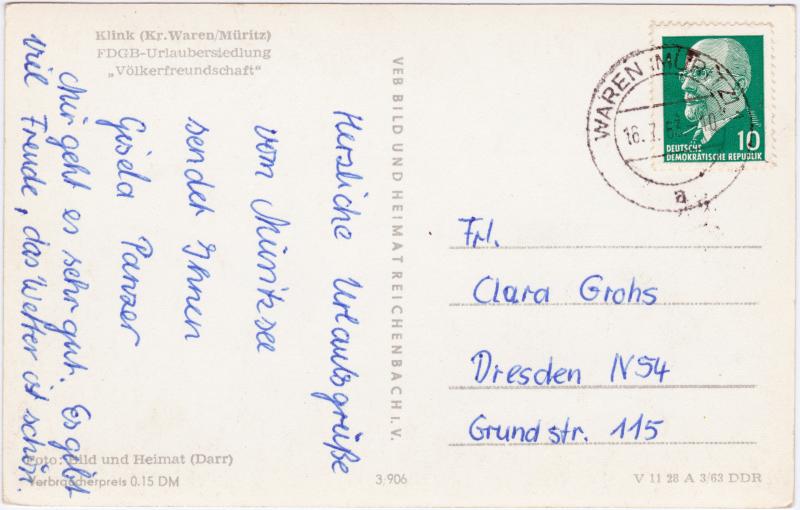 Klink (Kr. Waren/Müritz)
FDGB-Urlaubersiedlung
„Völkerfreundschaft“
Herzliche Urlaubsgrüße
vom Müritzsee
sendet Ihnen
Gisela Panzer
Mir geht es sehr gut. Es gibt
viel Freude, das Wetter ist schön.
Foto: Bild und Heimat (Darr)
Verbraucherpreis 0.15 DM
VEB BILD UND HEIMAT REICHENBACH I. V.
3/906
WAREN (MÜRITZ)
16.7.63
a
10
DEUTSCHE
DEMOKRATISCHE REPUBLIK
Frl.
Clara Grohs
Dresden N54
Grundstr. 115
V 11 28 A 3/63 DDR